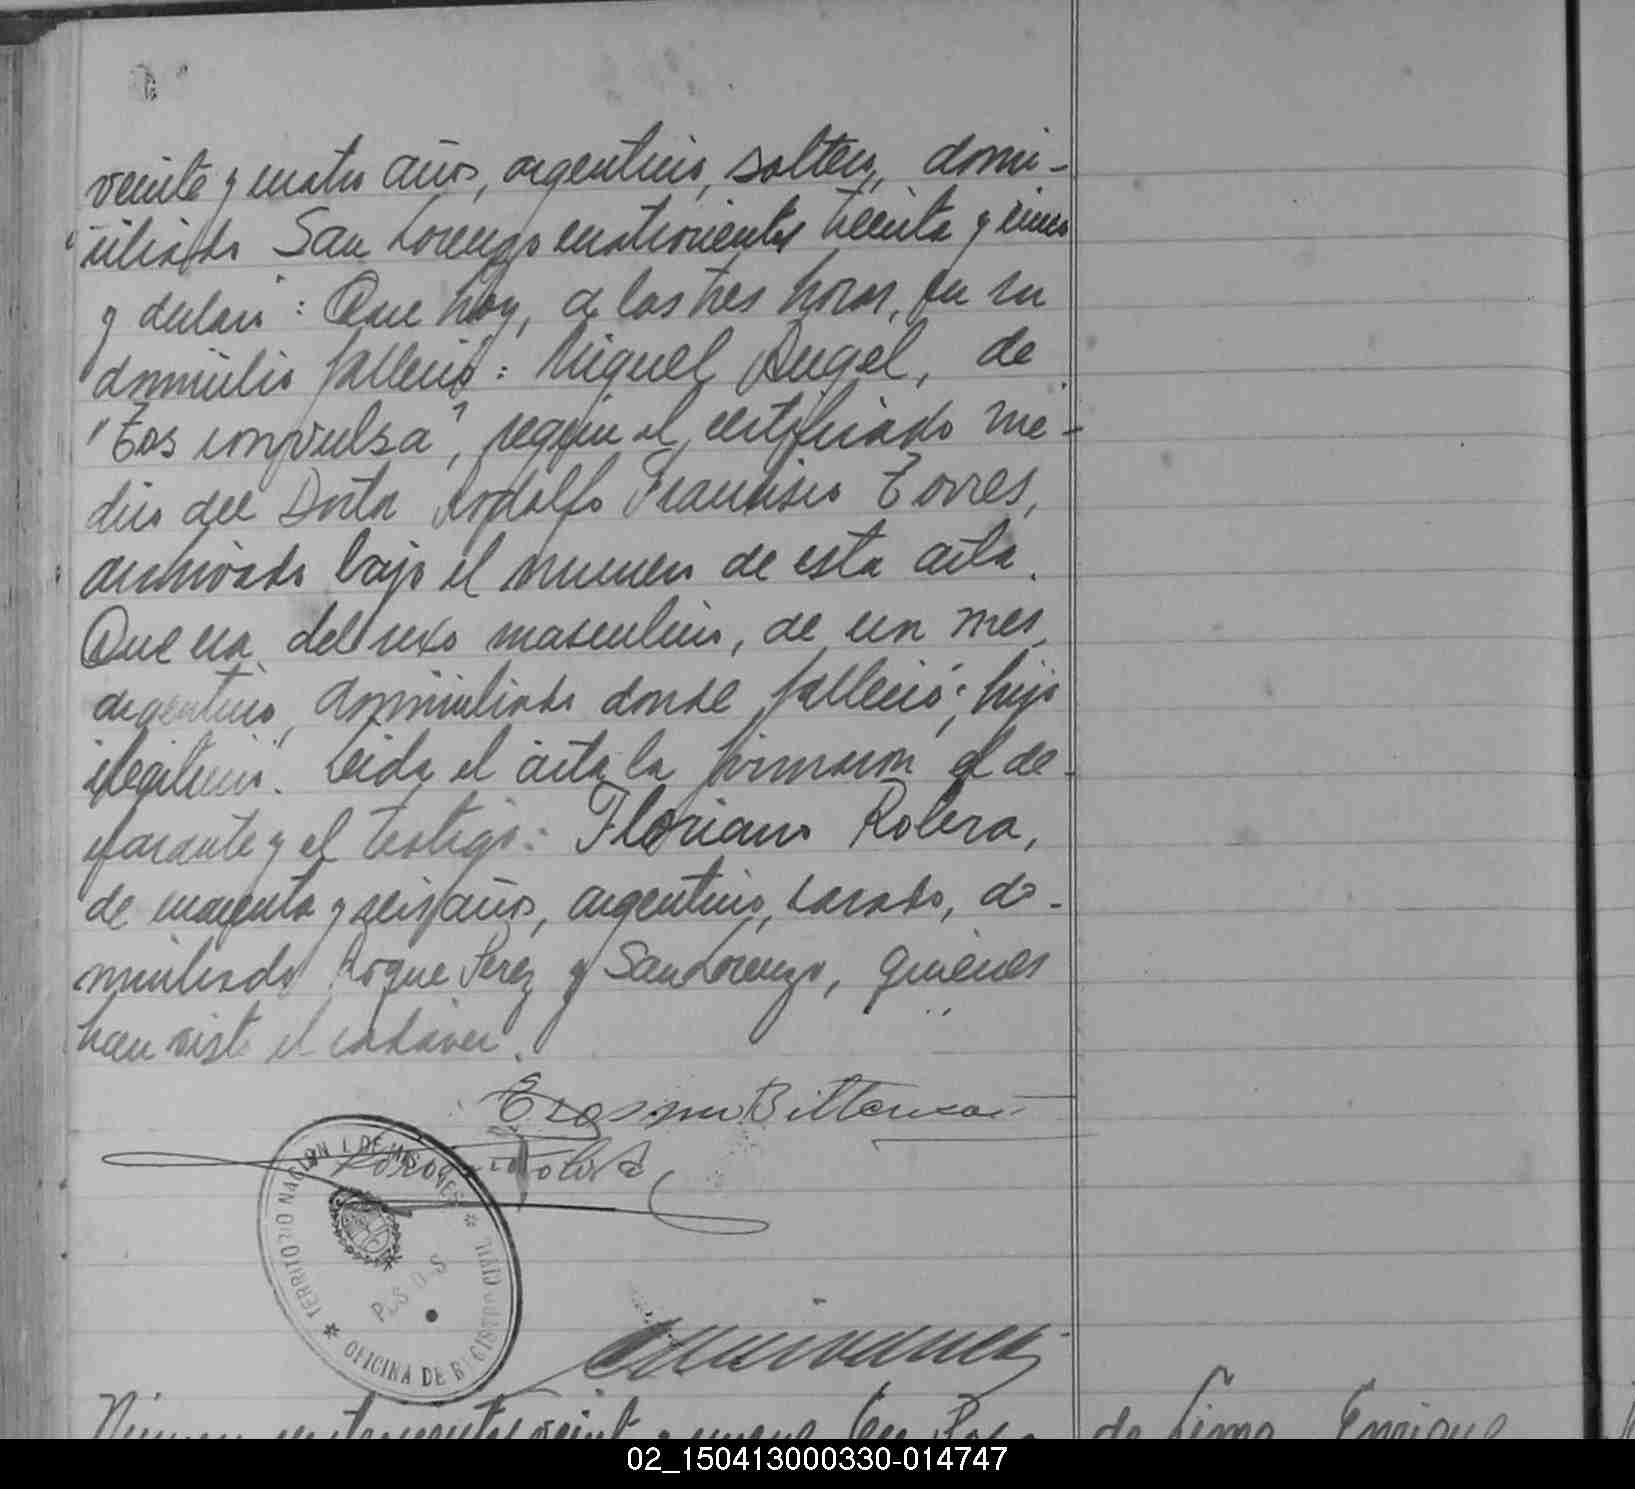 veinte y cuatro años, argentino, soltero, domi-
ciliado San Lorenzo cuatrocientos treinta y cinco
y declaró: Que hoy, a las tres horas, en su
domicilio falleció: Miguel Angel, de
"Tos convulsa", según el certificado mé-
dico del Doctor Rodolfo Francisco Torres,
archivado bajo el numero de esta acta.
Que era del sexo masculino, de un mes,
argentino, domiciliado donde falleció; hijo
ilegitimo. Leida el acta la firmaron el de-
clarante y el testigo: Floriano Rolera,
de cuarenta y seis años, argentino, casado, do-
miciliado Roque Perez y San Lorenzo, quienes
han visto el cadáver.
Erasmo Bittencourt
TERRITORIO NACIONAL DE MISIONES
OFICINA DE REGISTRO CIVIL
veinte y nueve En Posa
de Lima Enrique
02_150413000330-014747